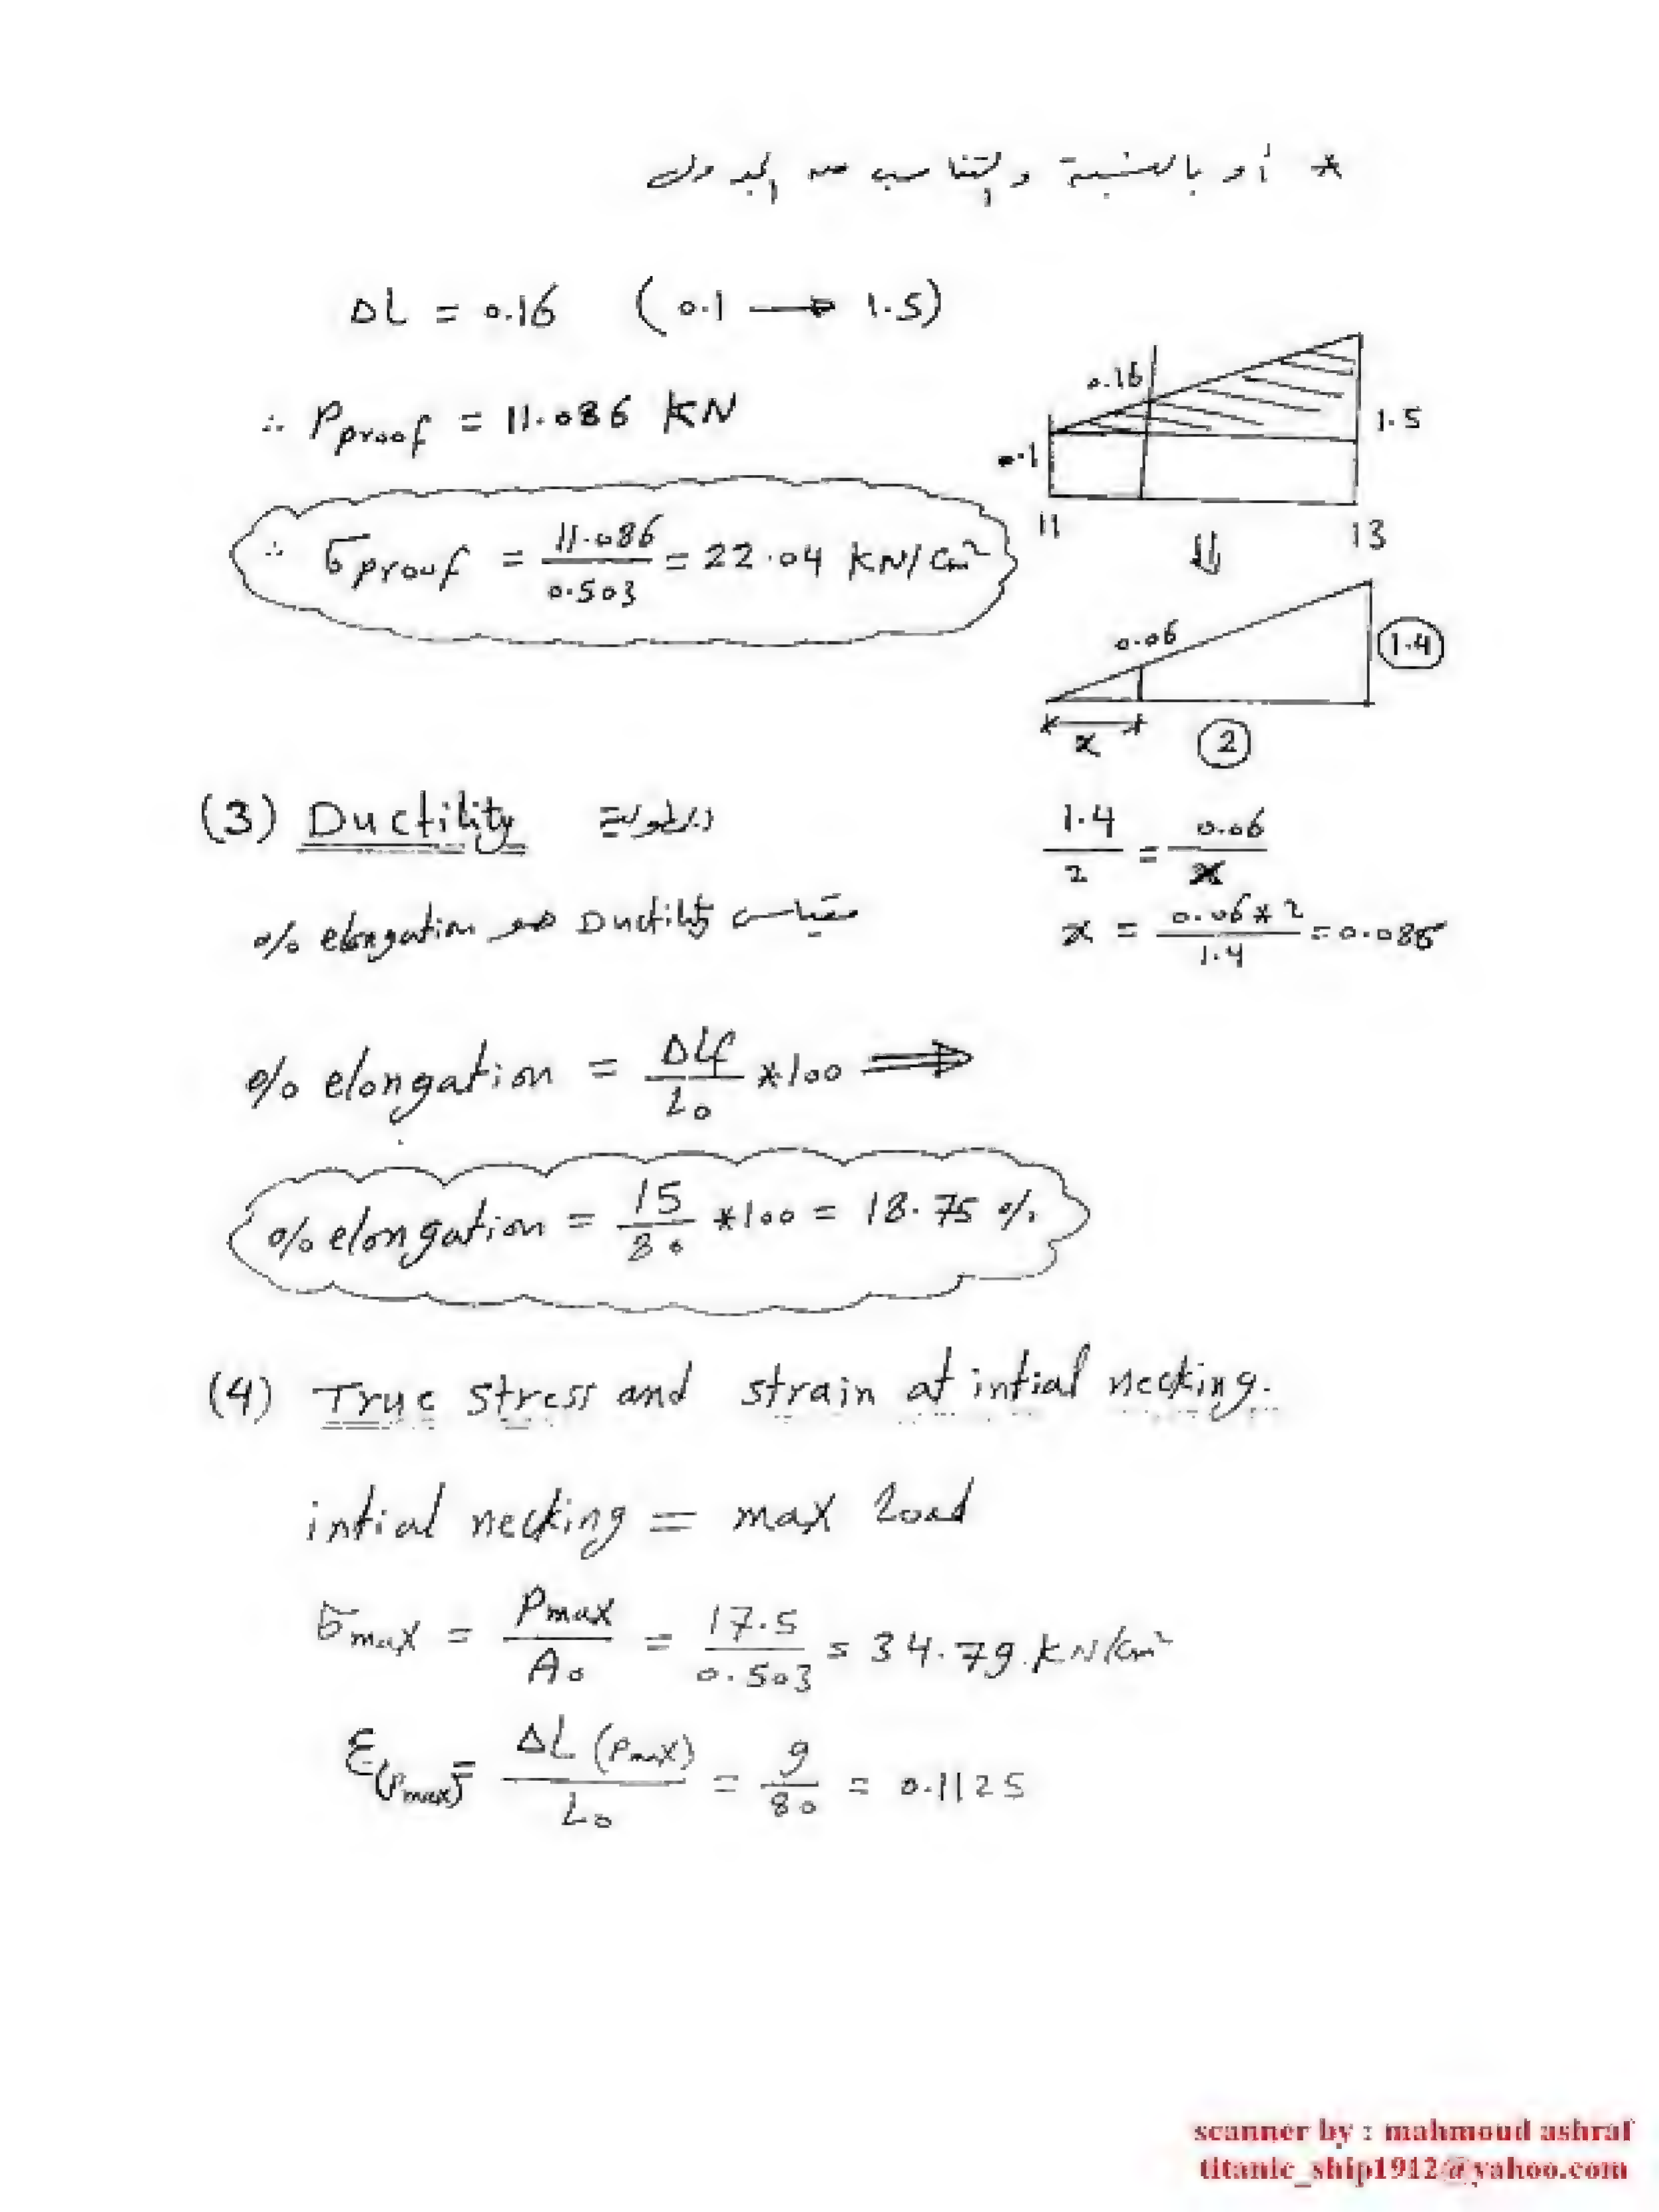 * أو بالنسبة والتناسب من الجدول
ΔL = 0.16 (0.1 → 1.5)
∴ Pproof = 11.086 KN
∴ σproof = 11.086/0.503 = 22.04 KN/cm²
0.16
0.1
1.5
11
13
⇓
0.06
1.4
x
2
1.4/2 = 0.06/x
x = 0.06*2/1.4 = 0.085
(3) Ductility
مقياس Ductility هو % elongation
% elongation = ΔLf/L0 *100 ⟹
% elongation = 15/80 *100 = 18.75 %
(4) True stress and strain at intial necking.
intial necking = max load
σmax = Pmax/A0 = 17.5/0.503 = 34.79 KN/cm²
ε(Pmax) = ΔL (Pmax)/L0 = 9/80 = 0.1125
scanner by : mahmoud ashraf
titanic_ship1912@yahoo.com